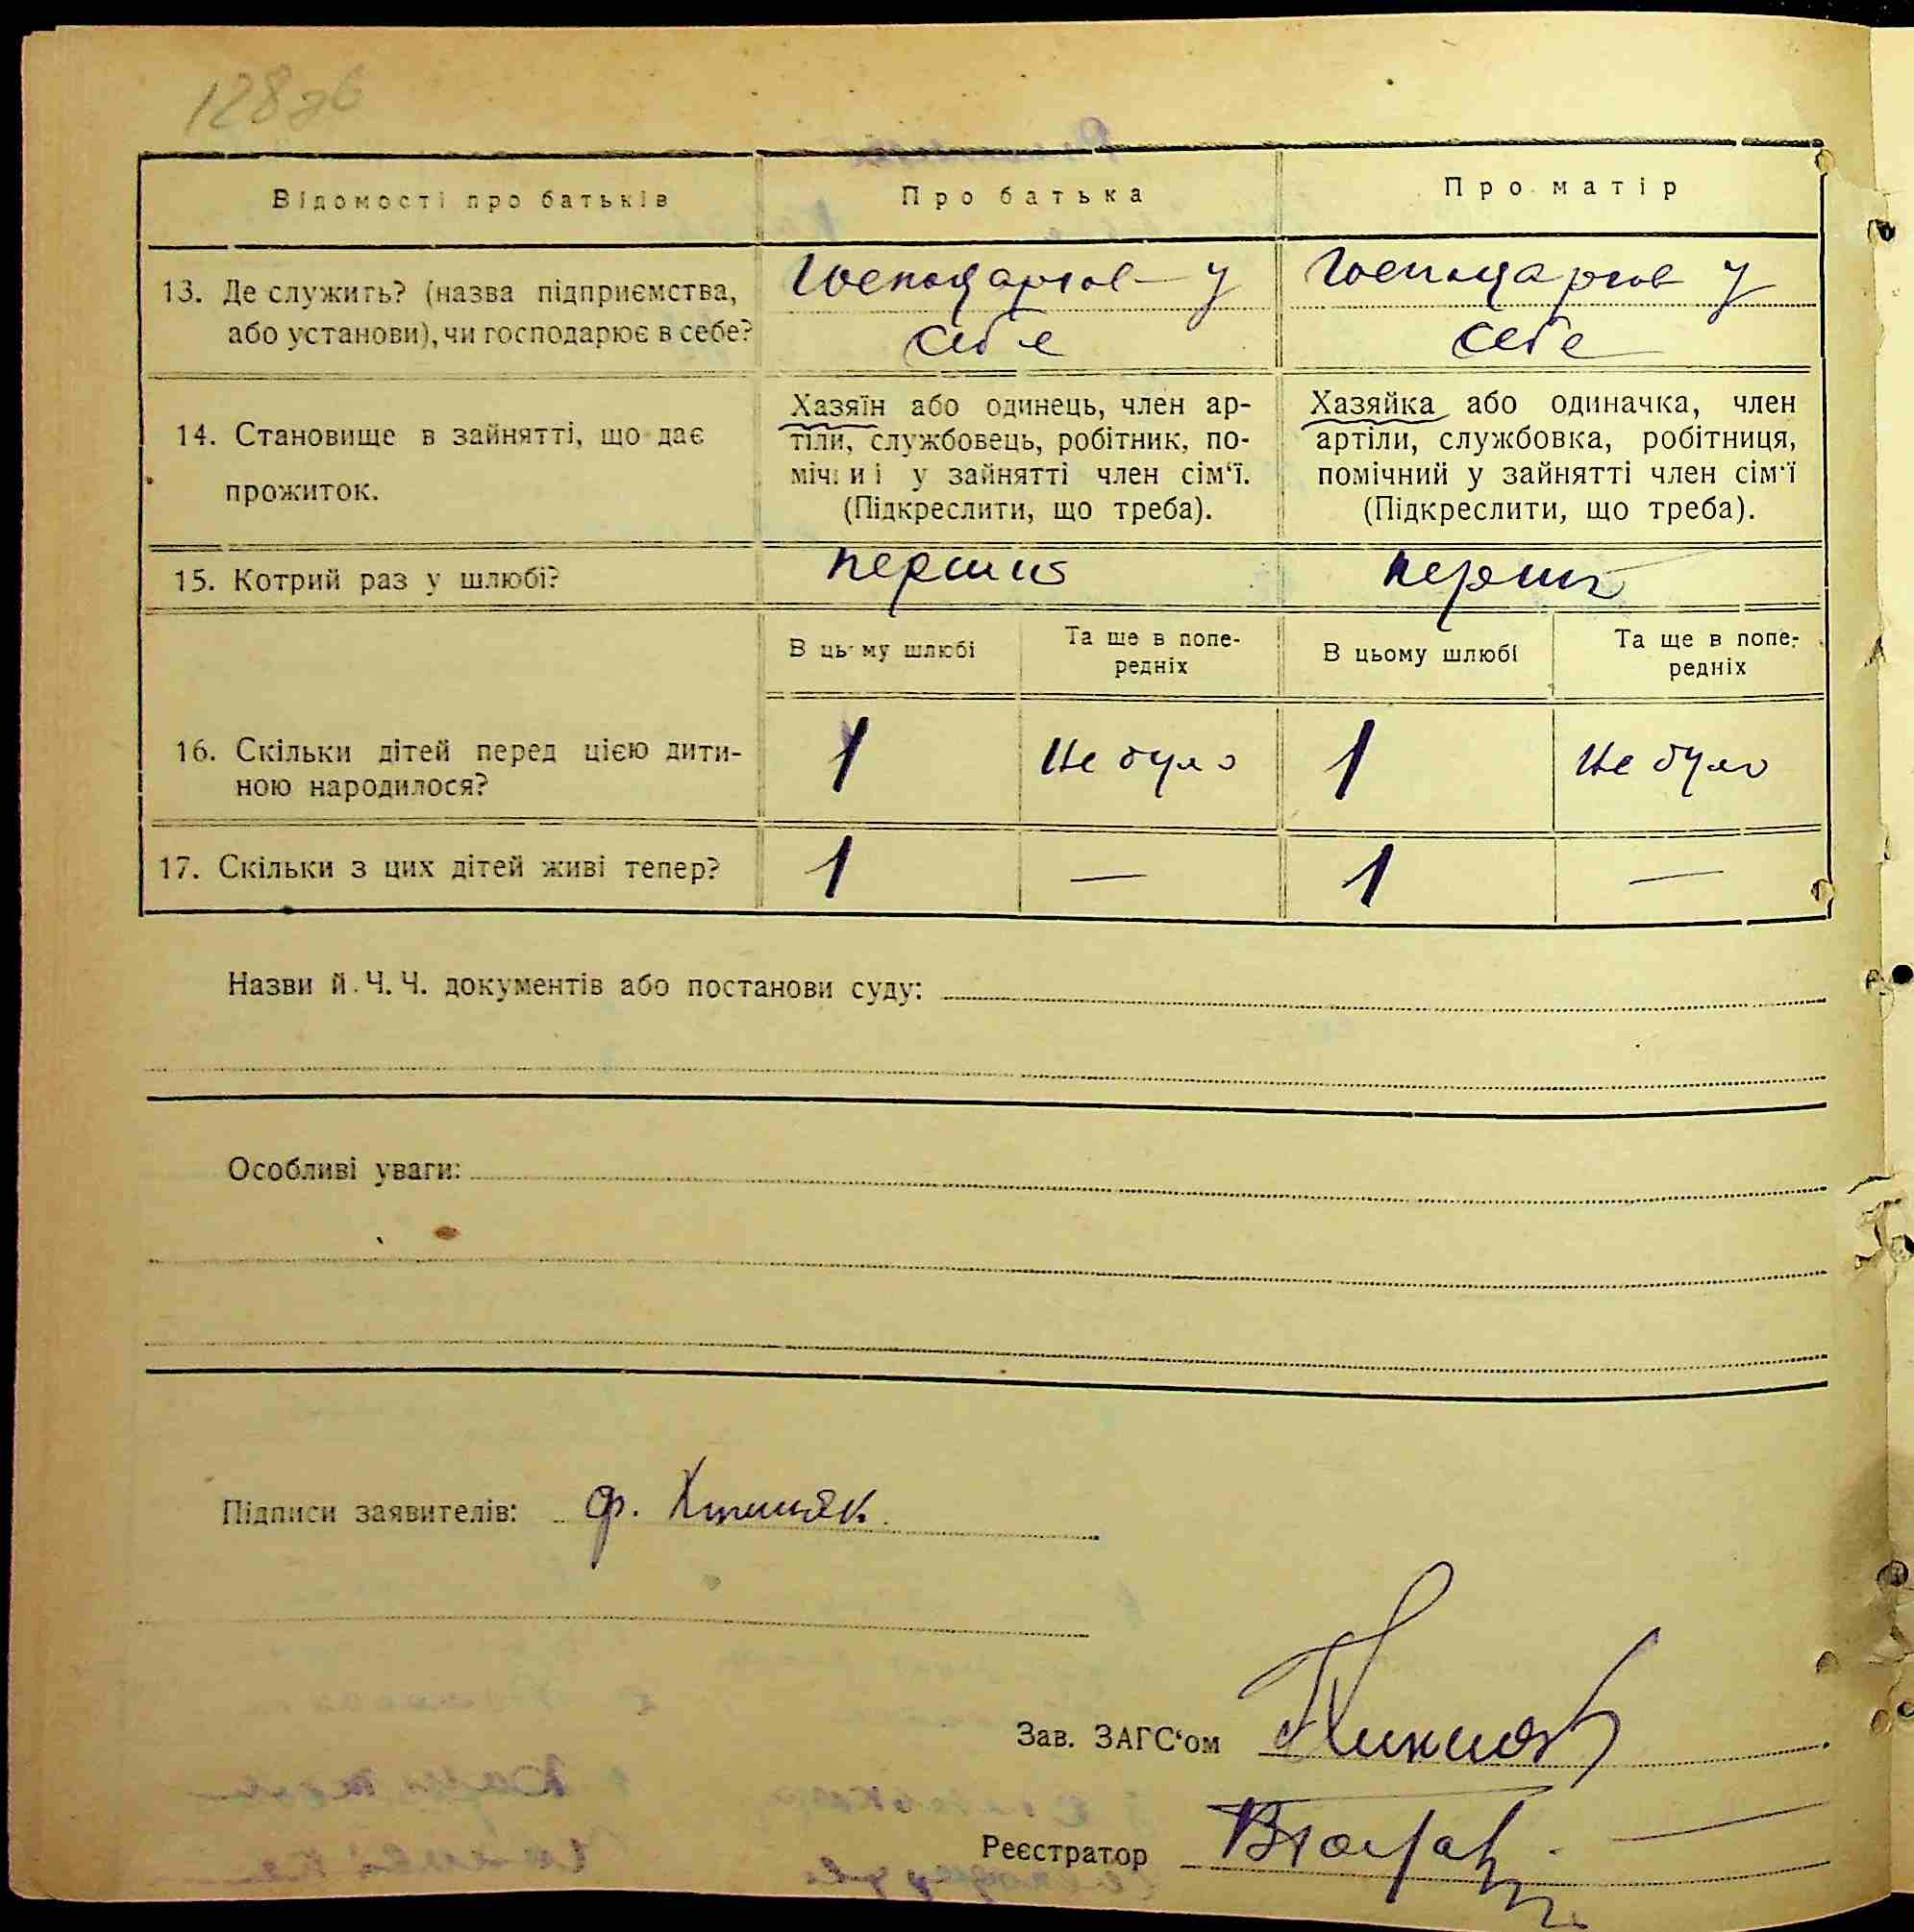 128зб
Відомості про батьків
Про батька
Про матір
13. Де служить? (назва підприємства,
або установи), чи господарює в себе?
Господарює у
себе
Господарює у
себе
14. Становище в зайнятті, що дає
прожиток.
Хазяїн або одинець, член ар-
тіли, службовець, робітник, по-
мічниі у зайнятті член сім'ї.
(Підкреслити, що треба).
Хазяйка або одиначка, член
артіли, службовка, робітниця,
помічний у зайнятті член сім'ї
(Підкреслити, що треба).
15. Котрий раз у шлюбі?
перший
перший
В цьому шлюбі
Та ще в попе-
редніх
В цьому шлюбі
Та ще в попе-
редніх
16. Скільки дітей перед цією дити-
ною народилося?
1
Не було
1
Не було
17. Скільки з цих дітей живі тепер?
1
—
1
—
Назви й Ч. Ч. документів або постанови суду:
Особливі уваги:
Підписи заявителів: Ф.
Зав. ЗАГС'ом
Реєстратор